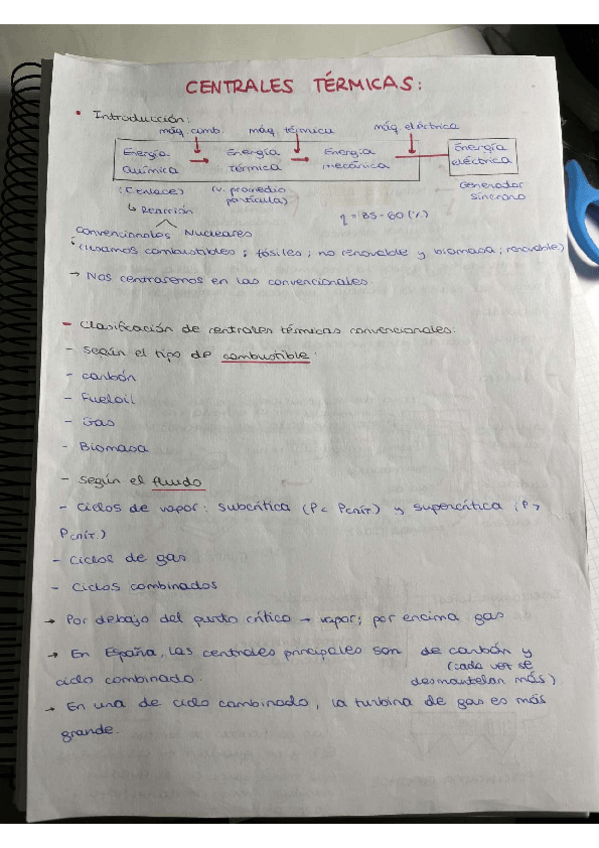 CENTRALES TÉRMICAS:
• Introducción:
máq. comb. máq. térmica máq. eléctrica
Energía Química → Energía Térmica → Energía mecánica → Energía eléctrica
(Enlace) (v. promedio partícula) Generador síncrono
↳ Reacción η = 35-60 (%)
Convencionales Nucleares
(Usamos combustibles; fósiles; no renovable y biomasa; renovable)
→ Nos centraremos en las convencionales.
- Clasificación de centrales térmicas convencionales:
- Según el tipo de combustible:
- Carbón
- Fueloil
- Gas
- Biomasa
- Según el fluido
- Ciclos de vapor: subcrítica (P< Pcrít.) y supercrítica (P>
Pcrít.)
- Ciclos de gas
- Ciclos combinados
→ Por debajo del punto crítico → vapor; por encima gas
→ En España, las centrales principales son de carbón y
(cada vez se
ciclo combinado. desmantelan más)
→ En una de ciclo combinado, la turbina de gas es más
grande.